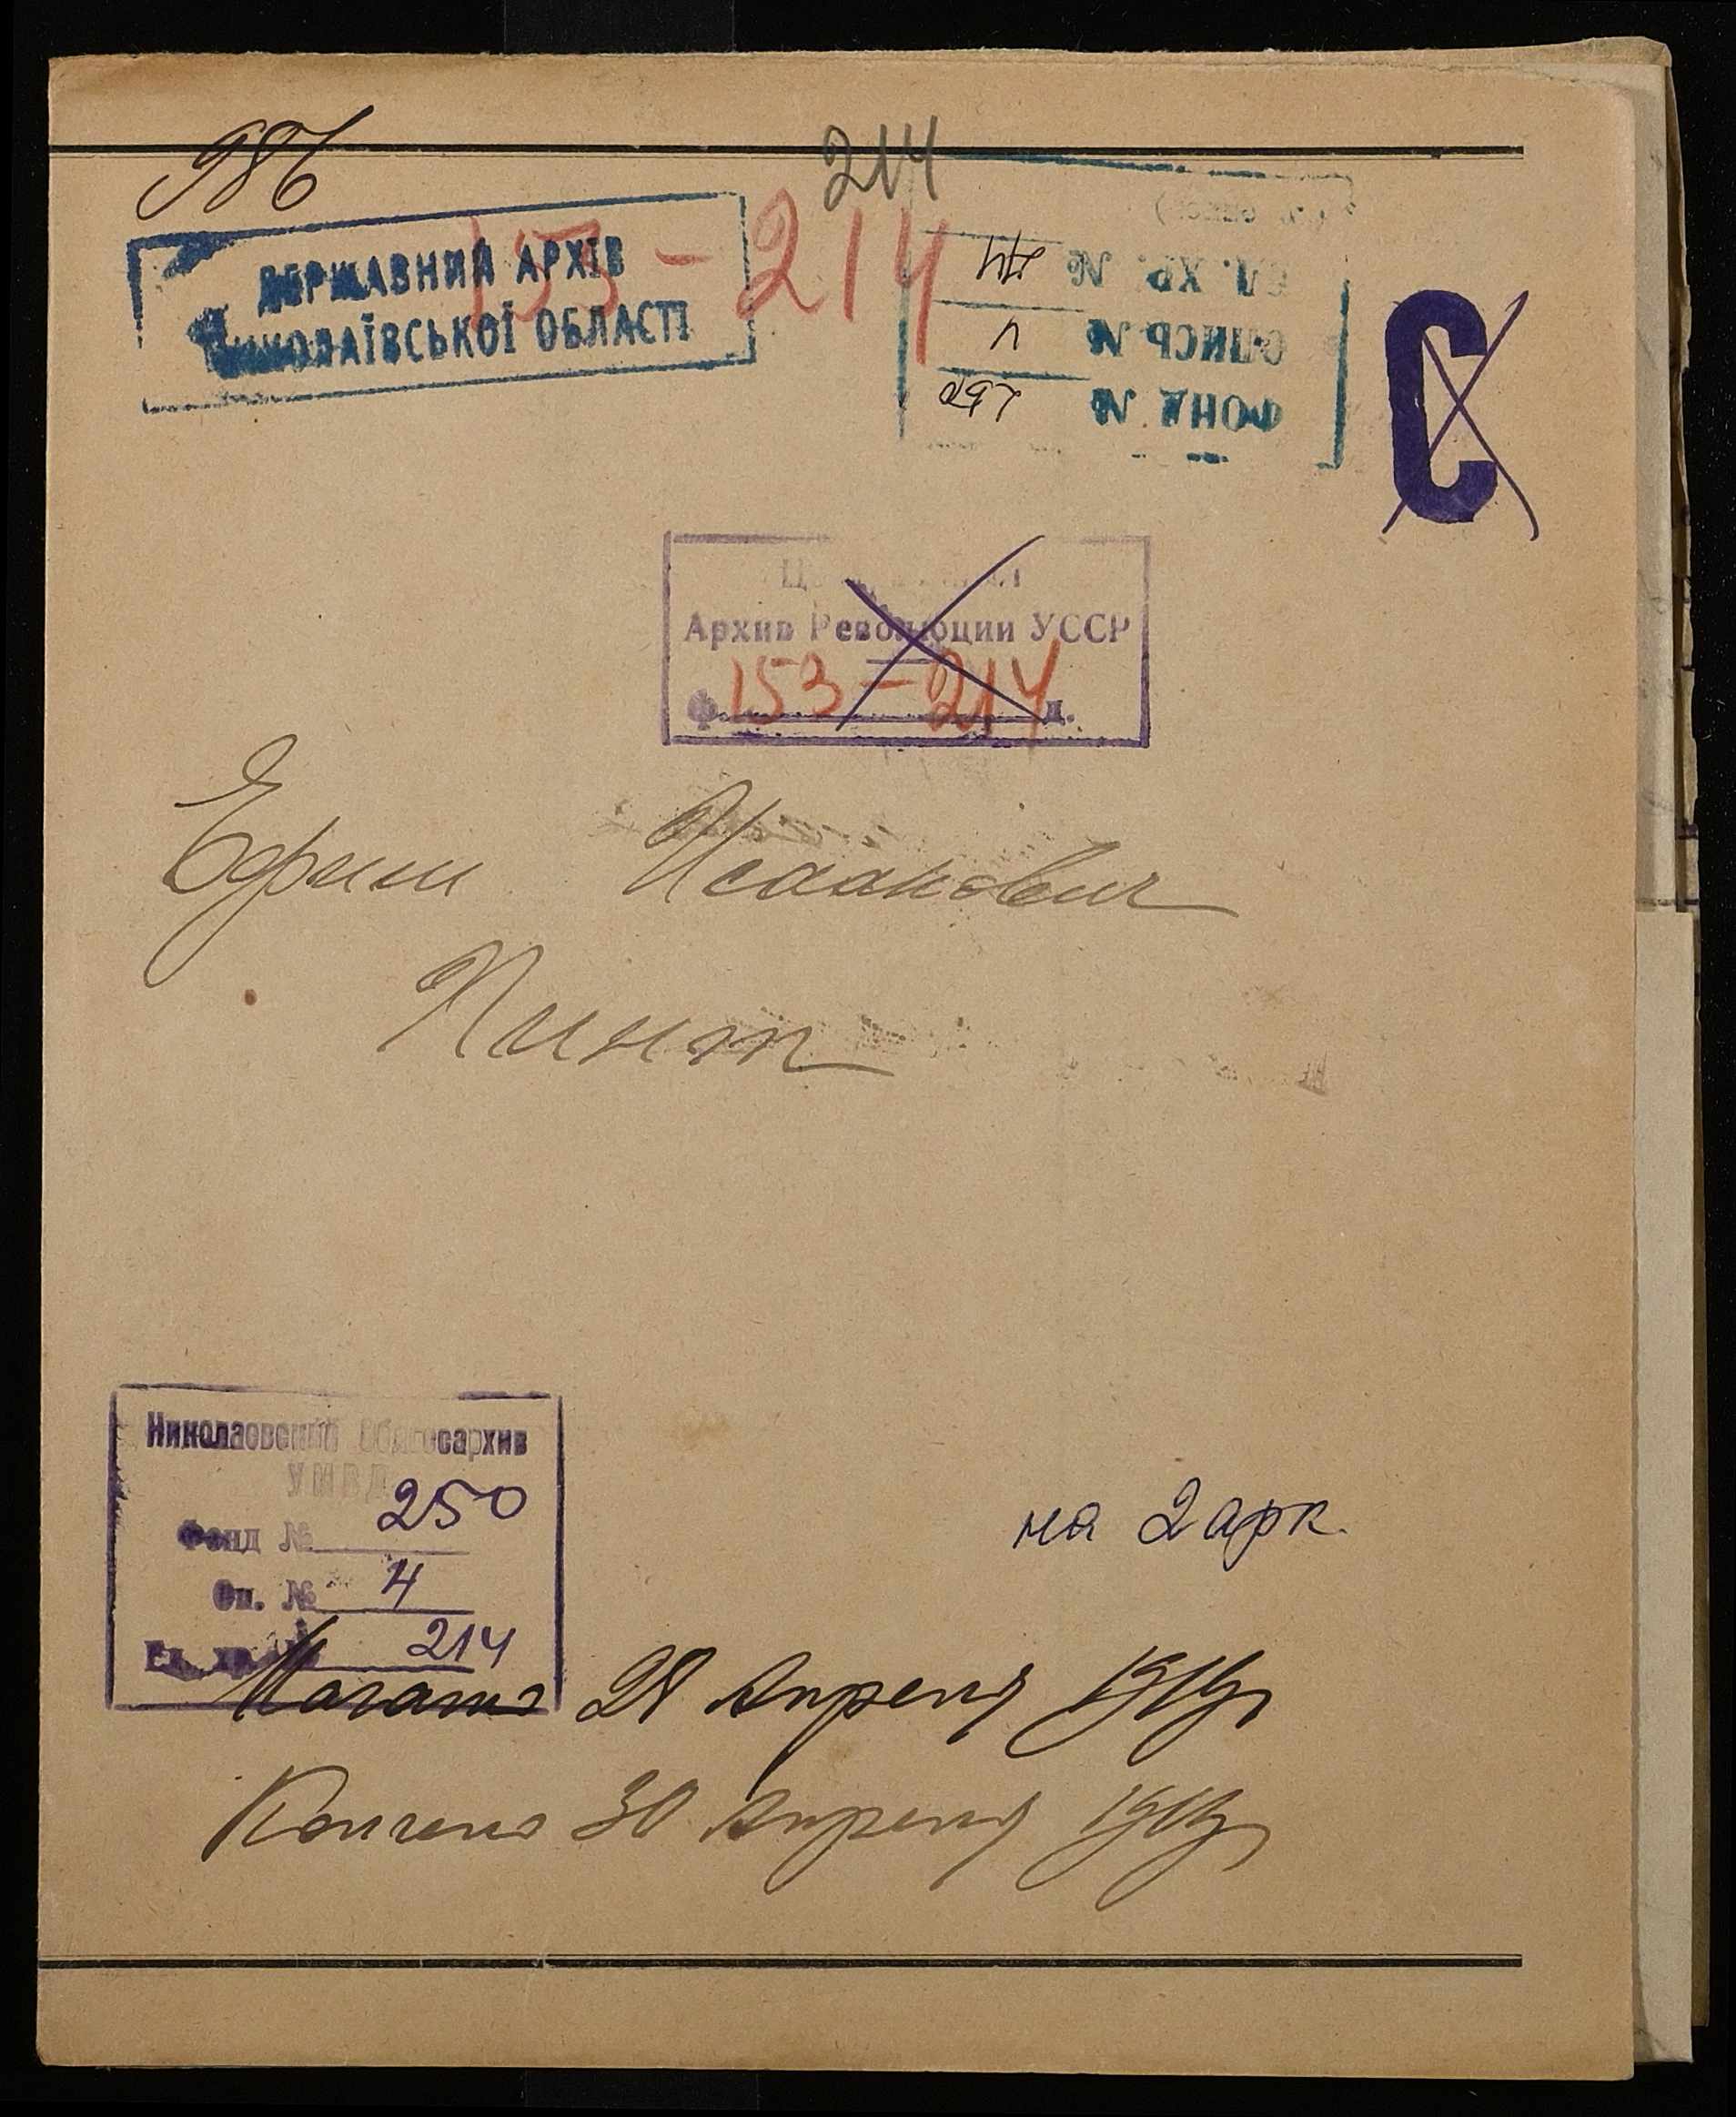 986
214
153-214
ДЕРЖАВНИЙ АРХІВ
МИКОЛАЇВСЬКОЇ ОБЛАСТІ
ФОНД № 250
ОПИСЬ №
ЕД. ХР. № 214
С
Архив Революции УССР
Ф. 153-214 д.
Ефим Исаакович
Пинт
Николаевский Облгосархив
УМВД
Фонд № 250
Оп. № 4
Ед. хр. № 214
на 2 арк.
Начато 28 Апреля 1919г
Кончено 30 Апреля 1919г